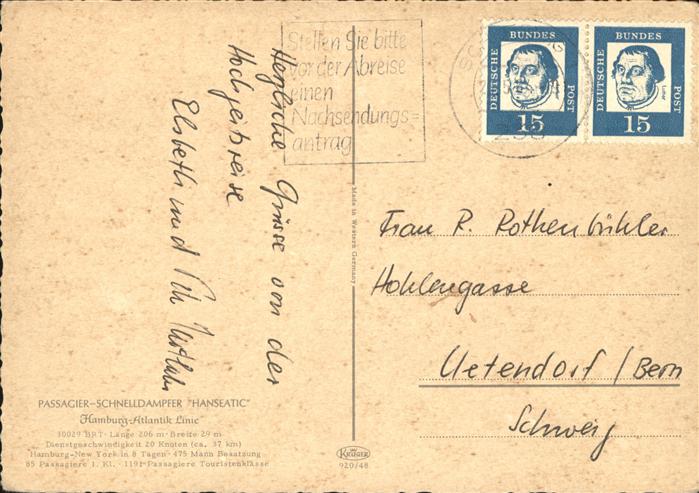 Stellen Sie bitte
vor der Abreise
einen
Nachsendungs=
antrag
DEUTSCHE BUNDES POST
15
DEUTSCHE BUNDES POST
Luther
15
Herzliche Grüsse von der
Hochzeitsreise
Elsbeth und
Made in Western Germany
Frau R. Rothenbühler
Hohlengasse
Uetendorf / Bern
Schweiz
PASSAGIER-SCHNELLDAMPFER "HANSEATIC"
Hamburg-Atlantik Linie
30029 BRT · Länge 206 m · Breite 29 m
Dienstgeschwindigkeit 20 Knoten (ca. 37 km)
Hamburg-New York in 8 Tagen · 475 Mann Besatzung
85 Passagiere 1. Kl. · 1191 Passagiere Touristenklasse
KRÜGER
920/48